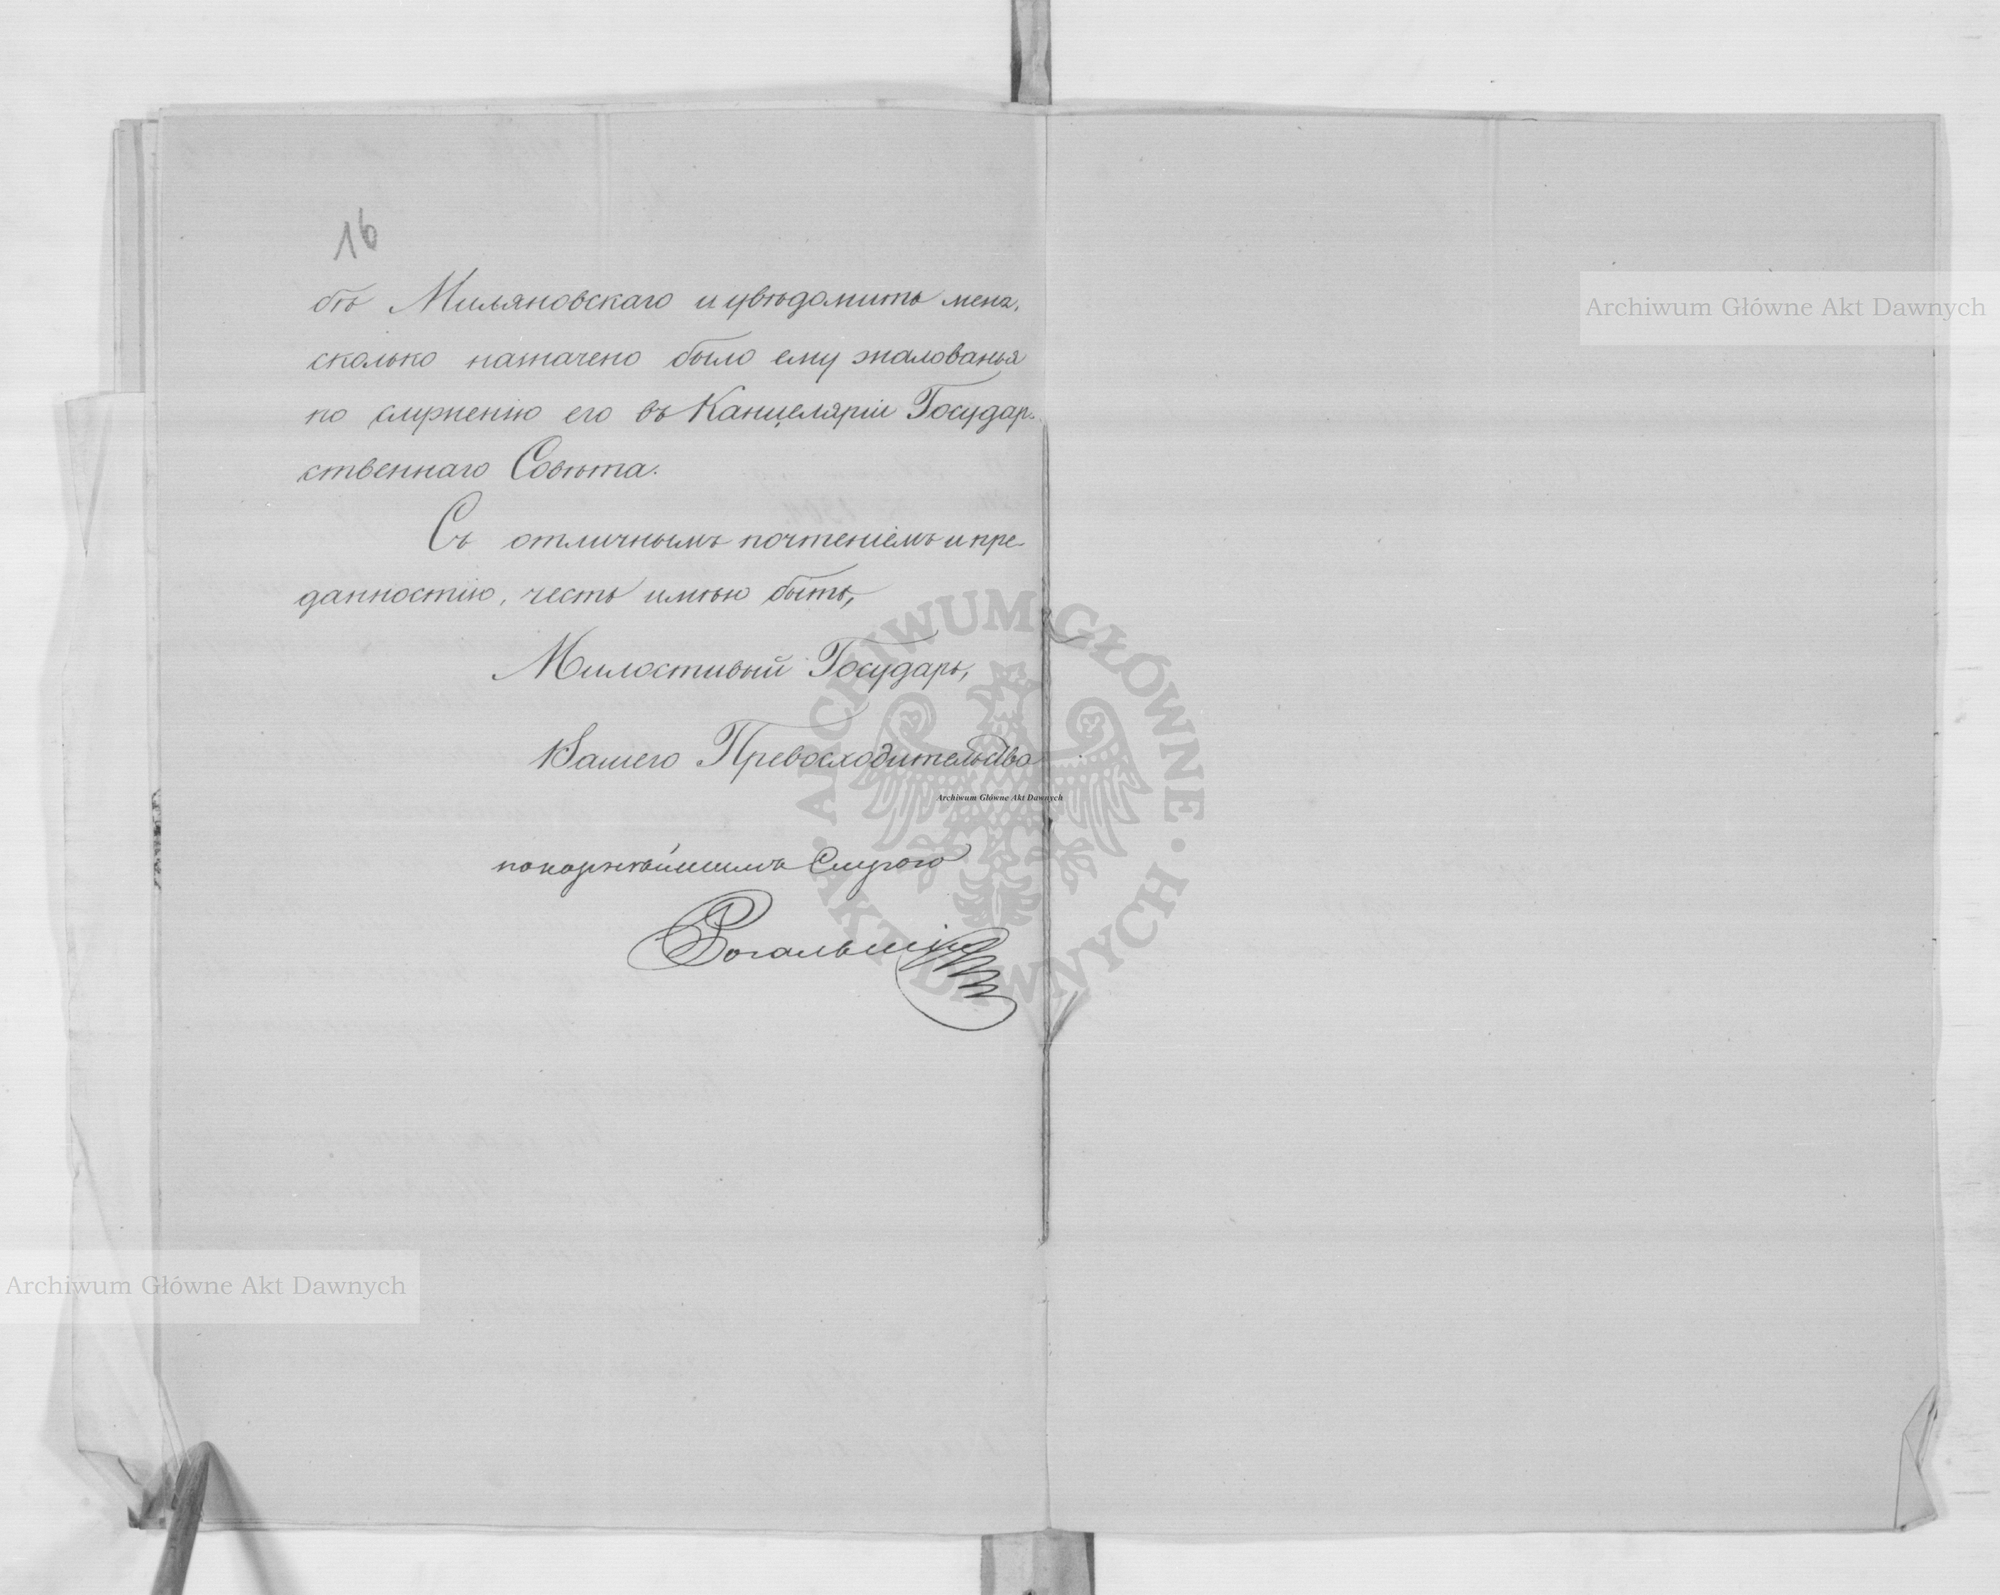 16
бѣ Миляновскаго и увѣдомить меня,
сколько назначено было ему жалованья
по служенію его въ Канцеляріи Государ-
ственнаго Совѣта.
Съ отличнымъ почтеніемъ и пре-
данностію, честь имѣю быть,
Милостивый Государь,
Вашего Превосходительства
покорнѣйшимъ слугою
Archiwum Główne Akt Dawnych
Archiwum Główne Akt Dawnych
Archiwum Główne Akt Dawnych
ARCHIWUM GŁÓWNE · AKT DAWNYCH ·